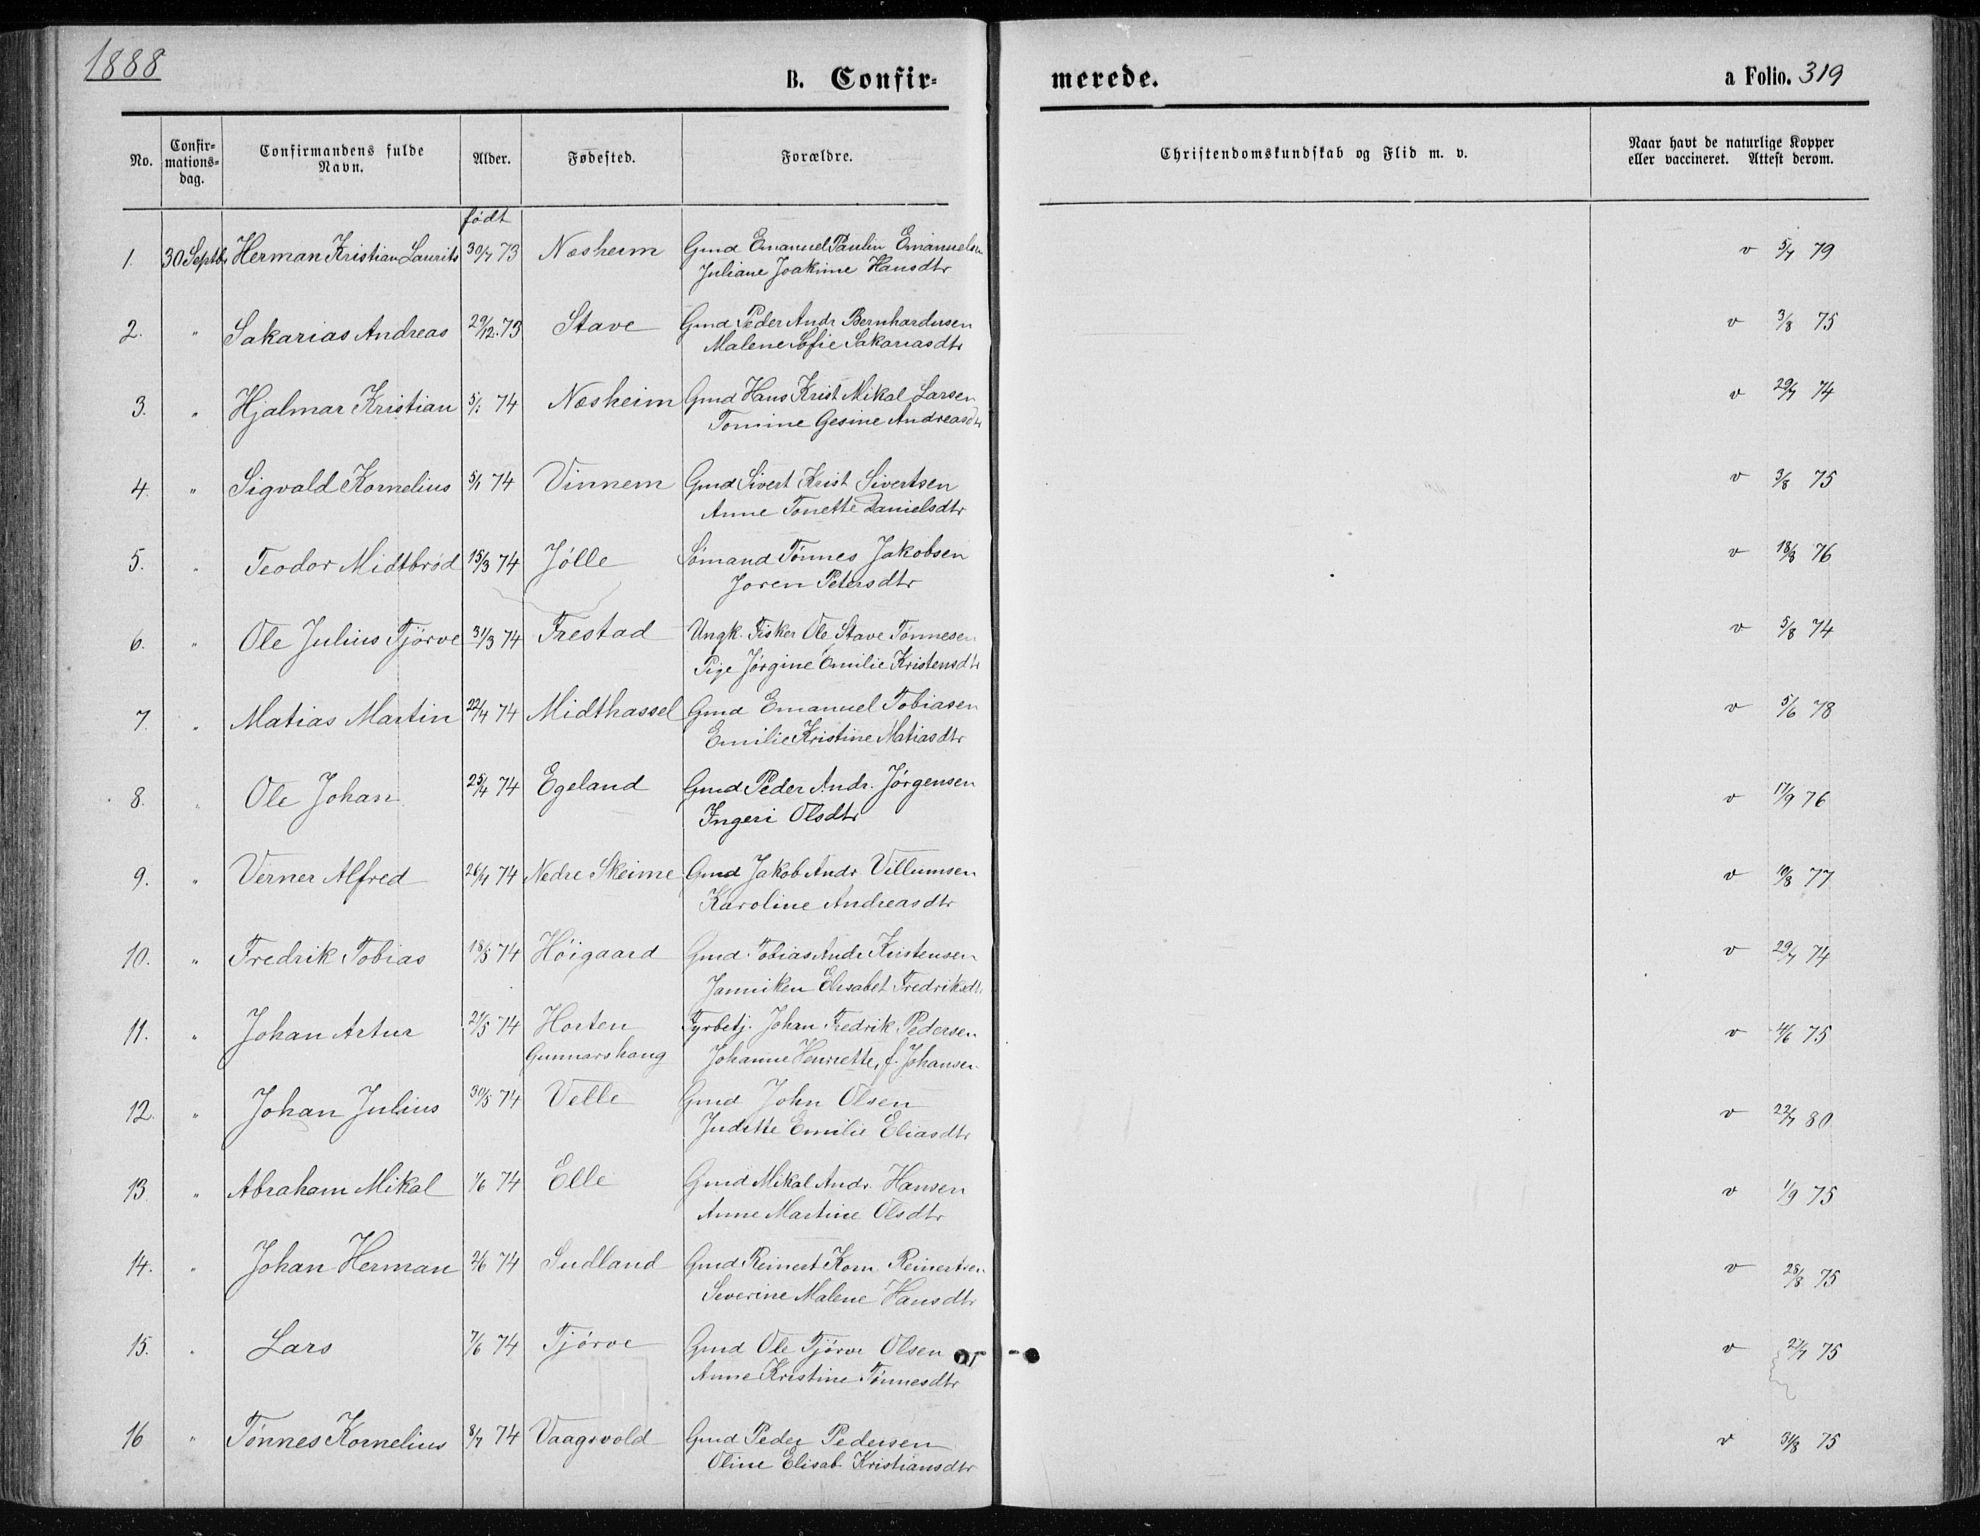 1888
B. Confir-
merede.
a Folio. 319
No.
Confir-
mations-
dag.
Confirmandens fulde
Navn.
Alder.
Fødested.
Forældre.
Christendomskundskab og Flid m. v.
Naar havt de naturlige Kopper
eller vaccineret. Attest derom.
født
1. 30 Septbr Herman Kristian Laurits 30/7 73 Nesheim Gmd Emanuel Paulin Emanuelsen v 5/7 79
Juliane Joakime Hansdtr
2. " Sakarias Andreas 29/12.73 Stave Gmd Peder Andr Bernhardusen v 3/8 75
Malene Sofie Sakariasdtr
3. " Hjalmar Kristian 5/1 74 Nesheim Gmd Hans Krist Mikal Larsen v 29/7 74
Tomine Gesine Andreasdtr
4. " Sigvald Kornelius 5/1 74 Vinnem Gmd Sivert Krist Sivertsen v 3/8 75
Anne Tonette Danielsdtr
5. " Teodor Midtbrød 15/3 74 Jølle Sømand Tønnes Jakobsen v 18/8 76
Joren Petersdtr
6. " Ole Julius Tjørve 31/3 74 Frestad Ungk. Fisker Ole Stave Tønnesen v 5/8 74
Pige Jørgine Emilie Kristensdtr
7. " Matias Martin 22/4 74 Midthassel Gmd Emanuel Tobiasen v 5/6 78
Emilie Kristine Matiasdtr
8. " Ole Johan 25/4 74 Egeland Gmd Peder Andr. Jørgensen v 17/9 76
Ingeri Olsdtr
9. " Verner Alfred 26/4 74 Nedre Skeime Gmd Jakob Andr Villumsen v 10/8 77
Karoline Andreasdtr
10. " Fredrik Tobias 18/5 74 Høigaard Gmd Tobias Andr Kristensen v 29/7 74
Janniken Elisabet Fredriksdtr
11. " Johan Artur 21/5 74 Horten Fyrbetj. Johan Fredrik Pedersen v 4/6 75
Gunnarshaug Johanne Henriette, f. Johansen
12. " Johan Julius 30/5 74 Velle Gmd John Olsen v 22/7 80
Juditte Emilie Eliasdtr
13. " Abraham Mikal 1/6 74 Elle Gmd Mikal Andr. Hansen v 1/9 75
Anne Martine Olsdtr
14. " Johan Herman 2/6 74 Sudland Gmd Reinert Korn Reinertsen v 28/8 75
Severine Malene Hansdtr
15. " Lars 7/6 74 Tjørve Gmd Ole Tjørve Olsen v 27/7 75
Anne Kristine Tønnesdtr
16 " Tønnes Kornelius 8/7 74 Vaagsvold Gmd Peder Pedersen v 31/8 75
Oline Elisab. Kristiansdtr